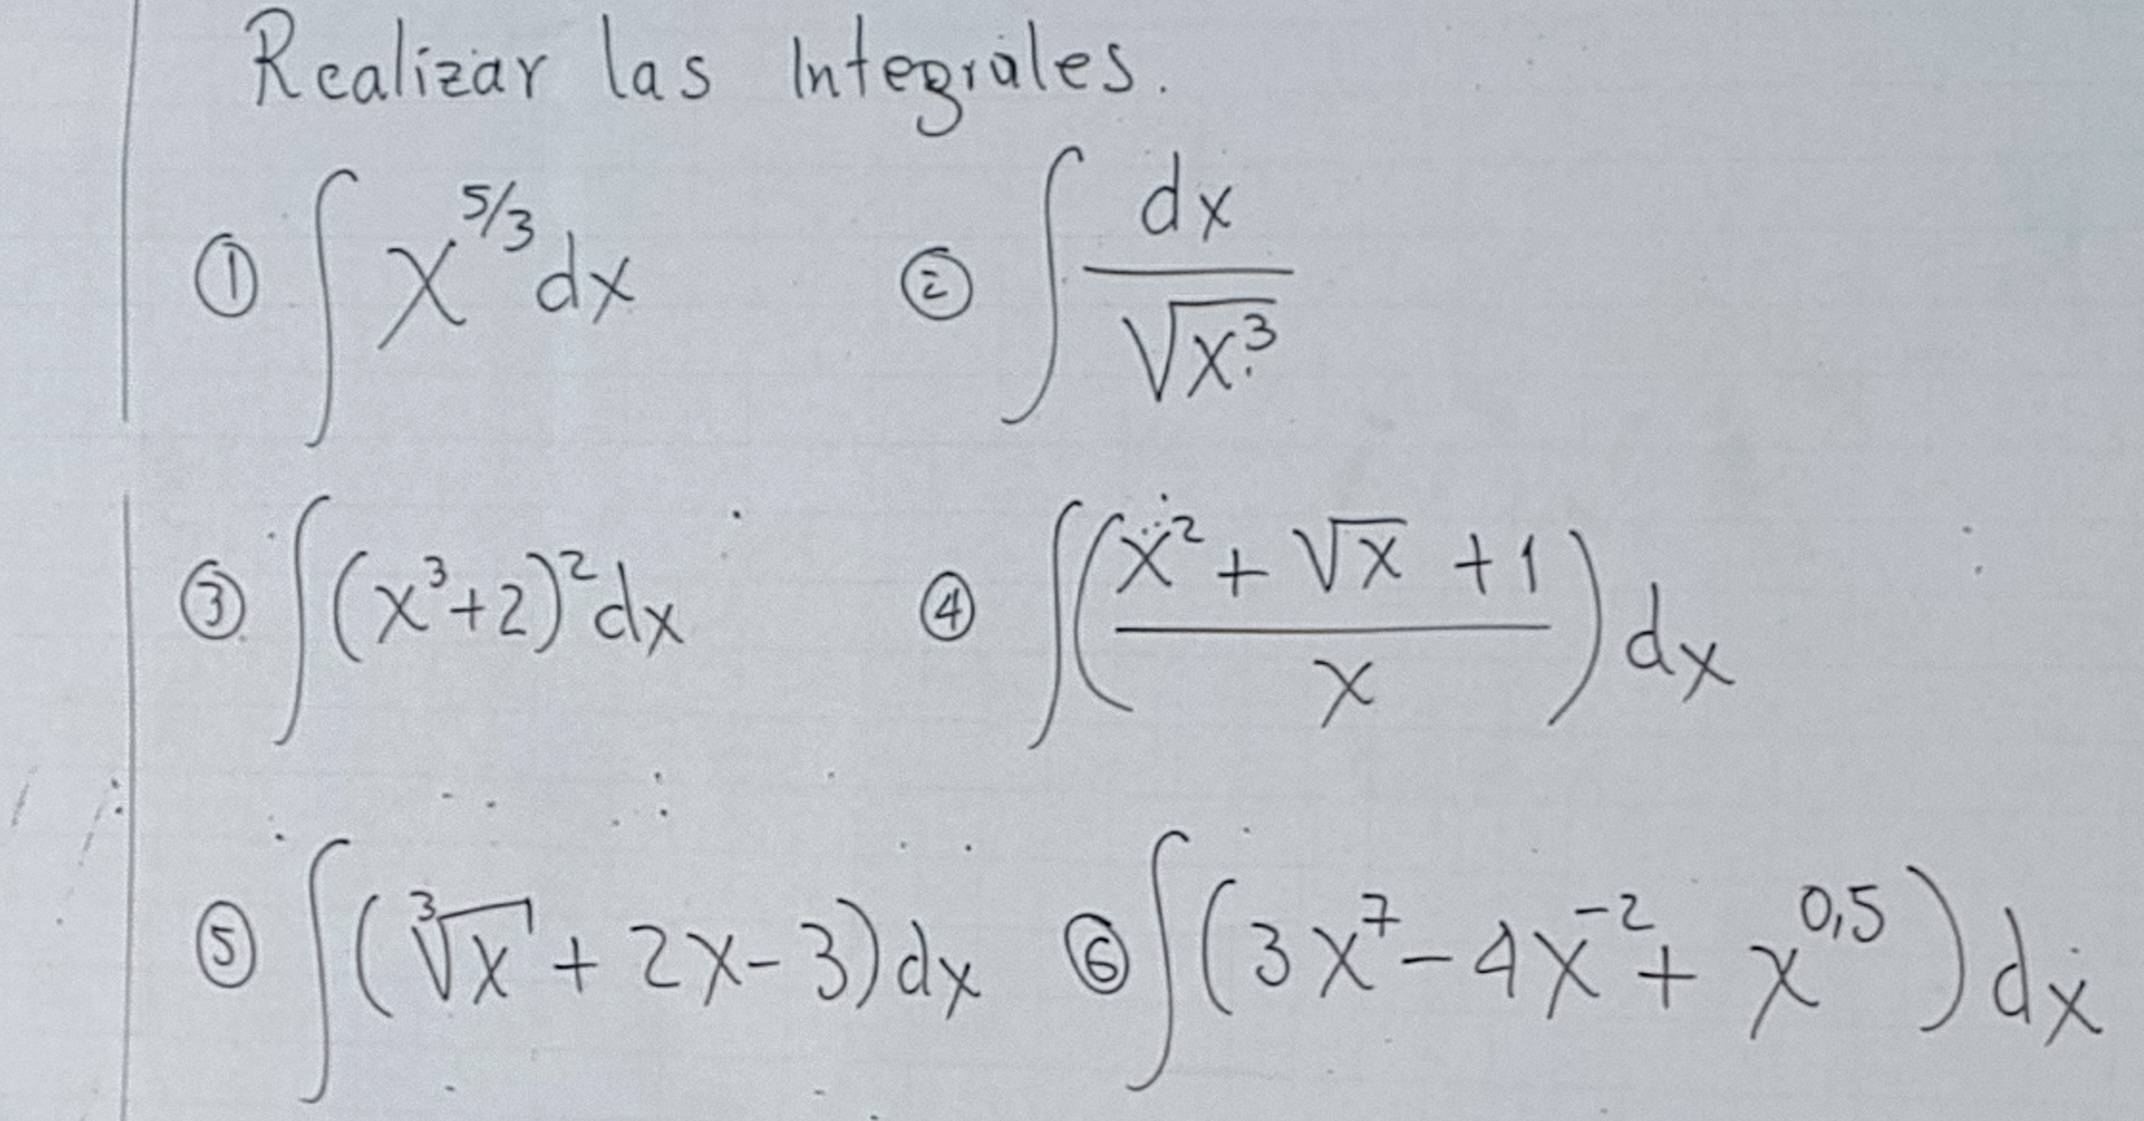 Realizar las Integrales.
① ∫ x^{5/3} dx ② ∫ dx/√(x³)
③ ∫ (x³+2)² dx ④ ∫ ((x² + √x + 1)/x) dx
⑤ ∫ (∛x + 2x - 3) dx ⑥ ∫ (3x⁷ - 4x⁻² + x^{0,5}) dx